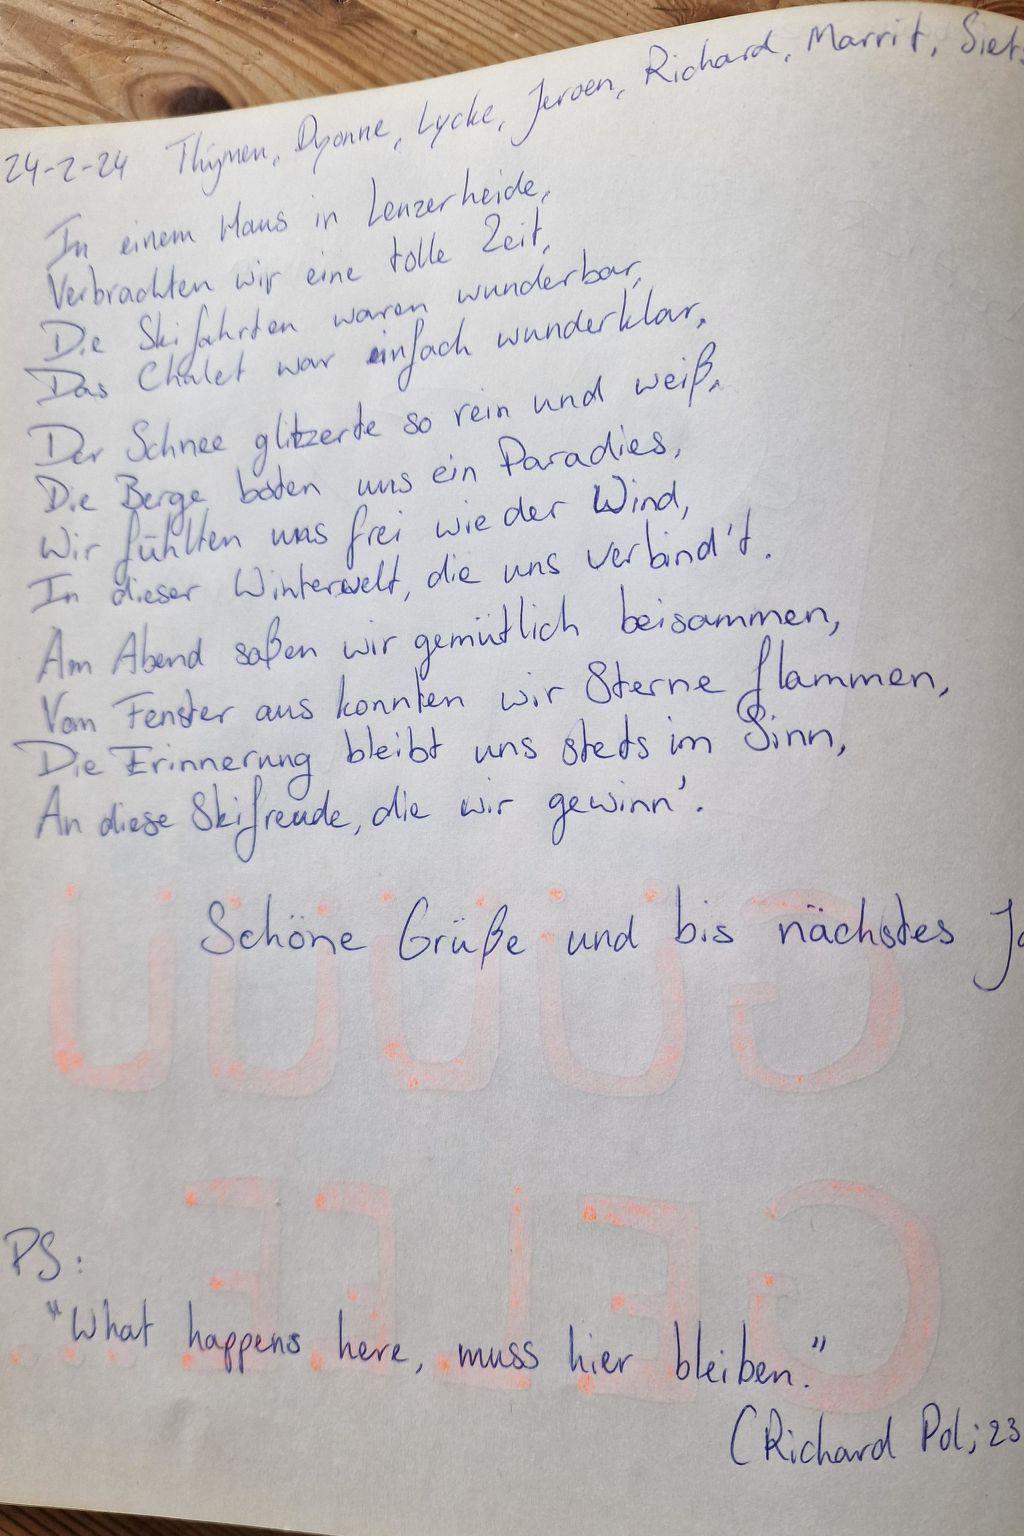 24-2-24 Thijmen, Dyonne, Lycke, Jeroen, Richard, Marrit,
In einem Haus in Lenzerheide,
Verbrachten wir eine tolle Zeit,
Die Skifahrten waren wunderbar,
Das Chalet war einfach wunderklar.
Der Schnee glitzerte so rein und weiß,
Die Berge boten uns ein Paradies,
Wir fühlten uns frei wie der Wind,
In dieser Winterwelt, die uns verbind't.
Am Abend saßen wir gemütlich beisammen,
Vom Fenster aus konnten wir Sterne flammen,
Die Erinnerung bleibt uns stets im Sinn,
An diese Skifreude, die wir gewinn'.
Schöne Grüße und bis nächstes
PS:
"What happens here, muss hier bleiben."
(Richard Pol; 23